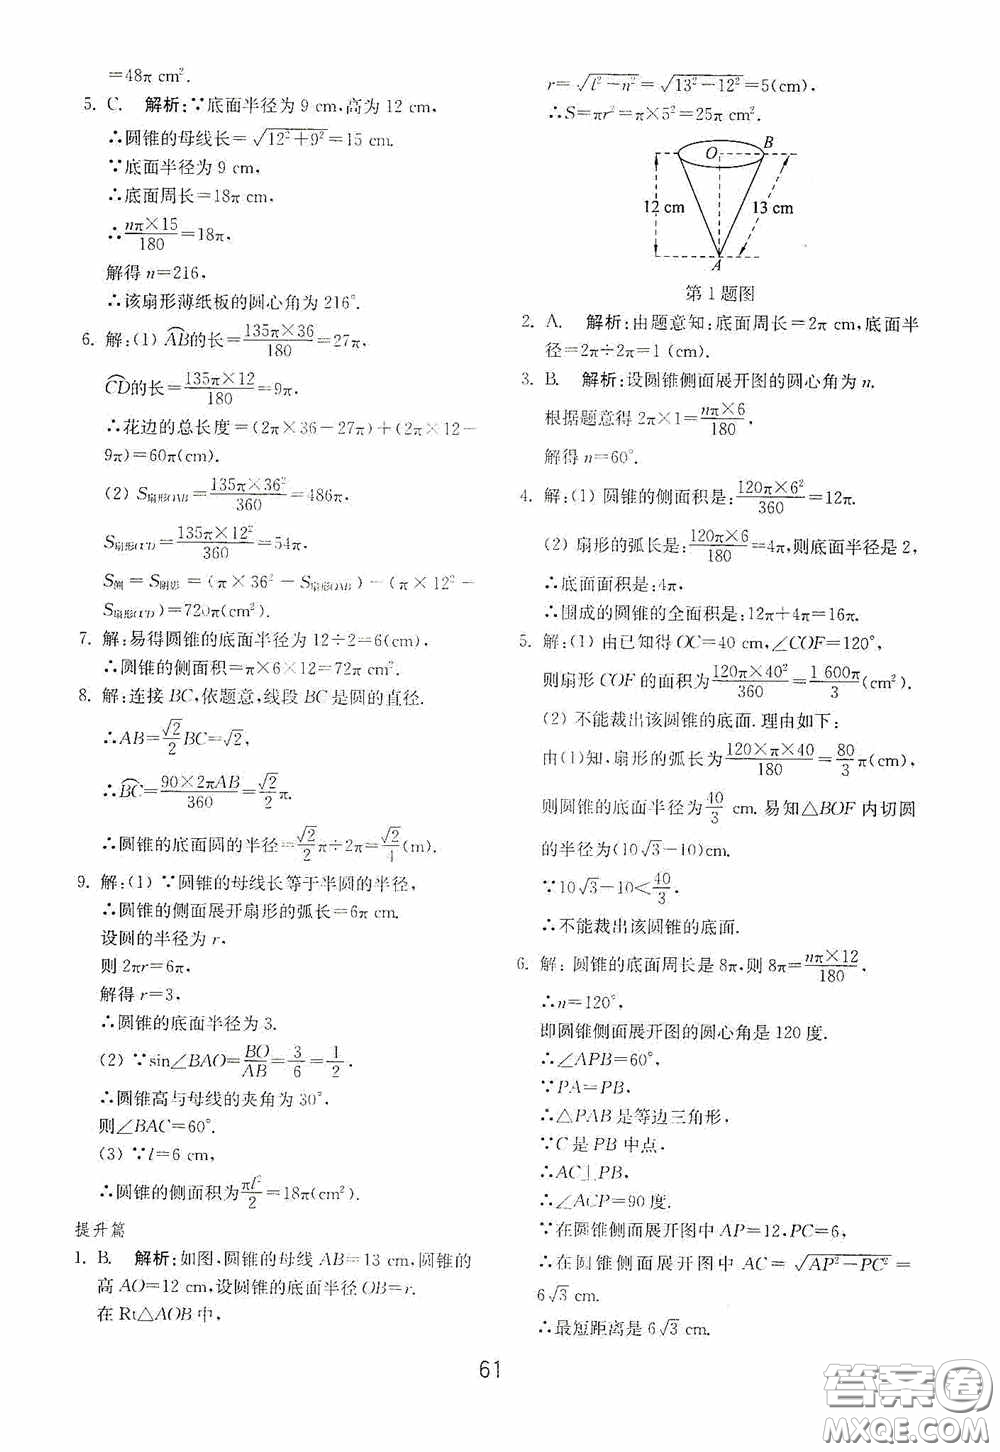 =48π cm².
5. C. 解析:∵底面半径为 9 cm,高为 12 cm,
∴圆锥的母线长=√(12²+9²)=15 cm.
∵底面半径为 9 cm,
∴底面周长=18π cm,
∴nπ×15/180=18π,
解得 n=216,
∴该扇形薄纸板的圆心角为 216°.
6. 解:(1) AB⌒的长=135π×36/180=27π,
CD⌒的长=135π×12/180=9π.
∴花边的总长度=(2π×36-27π)+(2π×12-
9π)=60π(cm).
(2) S扇形OAB=135π×36²/360=486π,
S扇形OCD=135π×12²/360=54π,
S侧=S阴影=(π×36²-S扇形OAB)-(π×12²-
S扇形OCD)=720π(cm²).
7. 解:易得圆锥的底面半径为 12÷2=6(cm),
∴圆锥的侧面积=π×6×12=72π cm².
8. 解:连接 BC,依题意,线段 BC 是圆的直径.
∴AB=√2/2 BC=√2,
∴BC⌒=90×2πAB/360=√2/2 π.
∴圆锥的底面圆的半径=√2/2 π÷2π=√2/4 (m).
9. 解:(1) ∵圆锥的母线长等于半圆的半径,
∴圆锥的侧面展开扇形的弧长=6π cm.
设圆的半径为 r,
则 2πr=6π,
解得 r=3,
∴圆锥的底面半径为 3.
(2) ∵sin∠BAO=BO/AB=3/6=1/2.
∴圆锥高与母线的夹角为 30°,
则∠BAC=60°.
(3) ∵l=6 cm,
∴圆锥的侧面积为πl²/2=18π(cm²).
提升篇
1. B. 解析:如图,圆锥的母线 AB=13 cm,圆锥的
高 AO=12 cm,设圆锥的底面半径 OB=r.
在 Rt△AOB 中,
r=√(l²-n²)=√(13²-12²)=5(cm)
∴S=πr²=π×5²=25π cm².
O B
12 cm 13 cm
A
第 1 题图
2. A. 解析:由题意知:底面周长=2π cm,底面半
径=2π÷2π=1 (cm).
3. B. 解析:设圆锥侧面展开图的圆心角为 n.
根据题意得 2π×1=nπ×6/180,
解得 n=60°.
4. 解:(1) 圆锥的侧面积是:120π×6²/360=12π.
(2) 扇形的弧长是:120π×6/180=4π,则底面半径是 2,
∴底面面积是:4π,
∴围成的圆锥的全面积是:12π+4π=16π.
5. 解:(1) 由已知得 OC=40 cm,∠COF=120°,
则扇形 COF 的面积为120π×40²/360=1 600π/3(cm²).
(2) 不能裁出该圆锥的底面.理由如下:
由(1)知,扇形的弧长为120×π×40/180=80/3 π(cm),
则圆锥的底面半径为40/3 cm. 易知△BOF 内切圆
的半径为(10√3-10)cm.
∵10√3-10<40/3.
∴不能裁出该圆锥的底面.
6. 解: 圆锥的底面周长是 8π,则 8π=nπ×12/180,
∴n=120°,
即圆锥侧面展开图的圆心角是 120 度.
∴∠APB=60°,
∵PA=PB,
∴△PAB 是等边三角形,
∵C 是 PB 中点,
∴AC⊥PB,
∴∠ACP=90 度.
∵在圆锥侧面展开图中 AP=12,PC=6,
∴在圆锥侧面展开图中 AC=√(AP²-PC²)=
6√3 cm.
∴最短距离是 6√3 cm.
61
答案圈
MXQE.COM